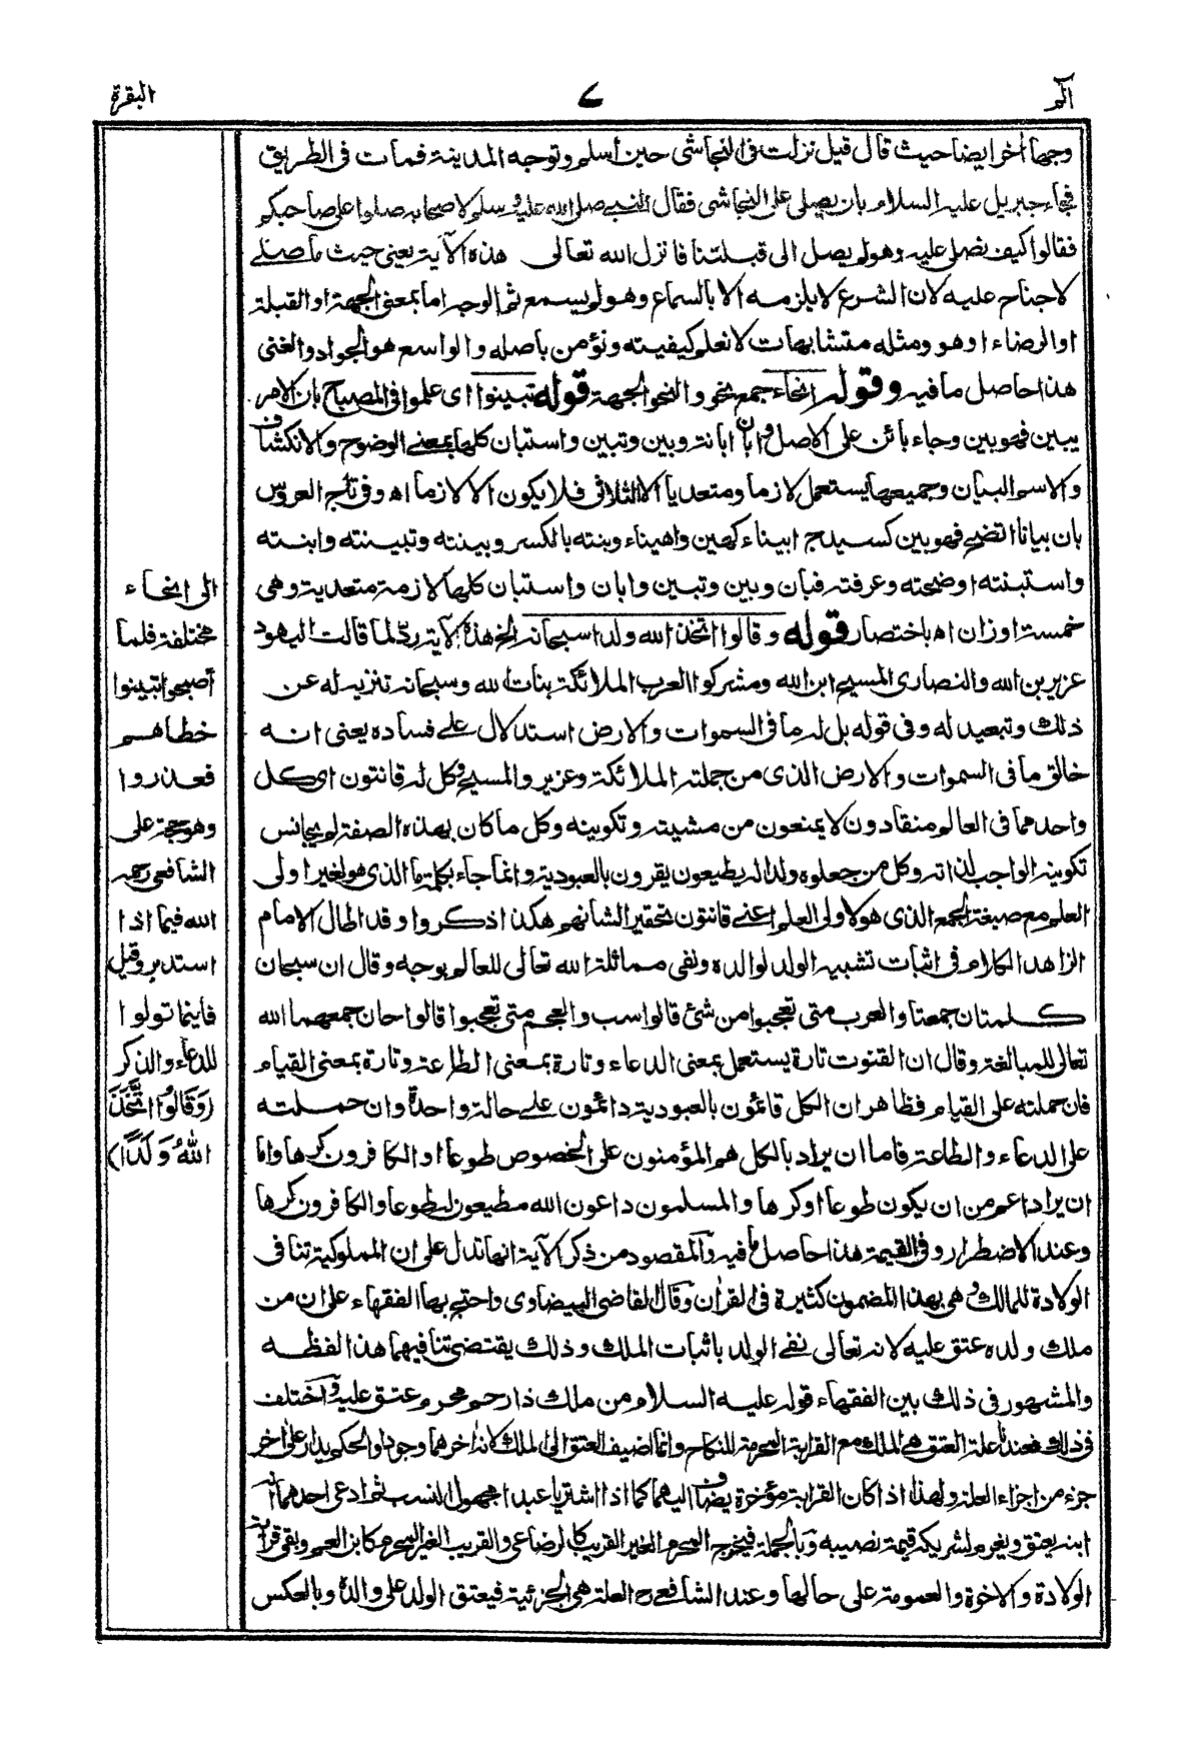 الم
٧
البقرة
وجها أخر ايضا حيث قال قيل نزلت فى النجاشى حين أسلم وتوجه المدينة فمات فى الطريق
فجاء جبريل عليه السلام بان يصلى على النجاشى فقال النبي صلى الله عليه وسلم لاصحابه صلوا على صاحبكم
فقالوا كيف نصلى عليه وهو لم يصل الى قبلتنا فانزل الله تعالى هذه الآية يعنى حيث ما صلى
لا جناح عليه لان الشرع لا يلزمه الا بالسماع وهو لم يسمع ثم الوجه اما بمعنى الجهة او القبلة
او الرضاء او هو ومثله متشابهات لا نعلم كيفيته ونؤمن باصله والواسع هو الجواد والغنى
هذا حاصل ما فيه وقوله انحاء جمع نحو والنحو الجهة قوله تبينوا اى علموا فى المصباح بان الامر
يبين فهو بين وجاء بائن على الاصل وابان ابانة وبين وتبين واستبان كلها بمعنى الوضوح والانكشاف
والاسم البيان وجميعها يستعمل لازما ومتعديا الا الثلاثى فلا يكون الا لازما اه وفى تاج العروس
بان بيانا اتضح فهو بين كسيد ج ابيناء كهين واهيناء وبنته بالكسر وبينته وتبينته وابنته
واستبنته اوضحته وعرفته فبان وبين وتبين وابان واستبان كلها لازمة متعدية وهى
خمسة اوزان اه باختصار قوله وقالوا اتخذ الله ولدا سبحانه الخ هذه الآية رد لما قالت اليهود
عزير بن الله والنصارى المسيح ابن الله ومشركوا العرب الملائكة بنات الله وسبحانه تنزيه له عن
ذلك وتبعيد له وفى قوله بل له ما فى السموات والارض استدلال على فساده يعنى انه
خالق ما فى السموات والارض الذى من جملته الملائكة وعزير والمسيح وكل له قانتون اى كل
واحد مما فى العالم منقادون لا يمنعون من مشيته وتكوينه وكل ما كان بهذه الصفة لم يجانس
تكوينه الواجب لذاته وكل من جعلوه ولدا له يطيعون يقرون بالعبودية وانما جاء بكلمة ما الذى هو لغير اولى
العلم مع صيغة الجمع الذى هو لاولى العلم اعنى قانتون تحقيرا لشانهم هكذا ذكروا وقد اطال الامام
الزاهد الكلام فى اثبات تشبيه الولد لوالده ونفى مماثلة الله تعالى للعالم بوجه وقال ان سبحان
كلمتان جمعتا والعرب متى تعجبوا من شئ قالوا سب والعجم متى تعجبوا قالوا حان جمعهما الله
تعالى للمبالغة وقال ان القنوت تارة يستعمل بمعنى الدعاء وتارة بمعنى الطاعة وتارة بمعنى القيام
فان حملته على القيام فظاهر ان الكل قائمون بالعبودية دائمون على حالة واحدة وان حملته
على الدعاء والطاعة فاما ان يراد بالكل هم المؤمنون على الخصوص طوعا او الكافرون كرها واما
ان يراد اعم من ان يكون طوعا او كرها والمسلمون داعون الله مطيعون له طوعا والكافرون كرها
وعند الاضطرار وفى القيمة هذا حاصل ما فيه والمقصود من ذكر الآية انها تدل على ان المملوكية تنافى
الولادة للمالك وهى بهذا المضمون كثيرة فى القرآن وقال القاضى البيضاوى واحتج بها الفقهاء على ان من
ملك ولده عتق عليه لانه تعالى نفى الولد باثبات الملك وذلك يقتضى تنافيهما هذا لفظه
والمشهور فى ذلك بين الفقهاء قوله عليه السلام من ملك ذا رحم محرم عتق عليه واختلف
فى ذلك فعندنا علة العتق هى الملك مع القرابة المحرمة للنكاح وانما اضيف العتق الى الملك لانه اخرهما وجودا والحكم يدار على اخر
جزء من اجزاء العلة ولهذا اذا كان القرابة مؤخرة يضاف اليها كما اذا اشتريا عبدا مجهول النسب ثم ادعى احدهما انه
ابنه يعتق ويغرم لشريكه قيمة نصيبه وبالجملة فيخرج المحرم الغير القريب كالرضاعى والقريب الغير المحرم كابن العم وبقى قرابة
الولادة والاخوة والعمومة على حالها وعند الشافعى رح العلة هى الجزئية فيعتق الولد على والده وبالعكس
الى انحاء
مختلفة فلما
أصبحوا تبينوا
خطاهم
فعذروا
وهو حجة على
الشافعى رحمه
الله فيما اذا
استدبر وقيل
فاينما تولوا
للدعاء والذكر
(وَقَالُوا اتَّخَذَ
اللهُ وَلَدًا)